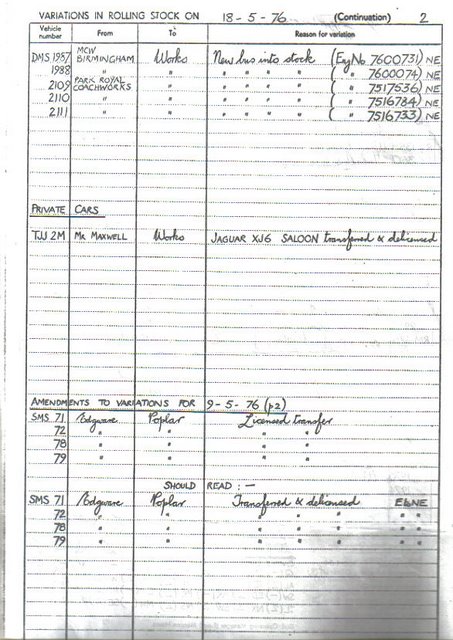 VARIATIONS IN ROLLING STOCK ON 18-5-76 (Continuation) 2
Vehicle number From To Reason for variation
DMS 1957 MCW BIRMINGHAM Works New bus into stock (Eng No 7600731) NE
1988 " " " " " " ( " 7600074) NE
2109 PARK ROYAL COACHWORKS " " " " " ( " 7517636) NE
2110 " " " " " " ( " 7516784) NE
2111 " " " " " " ( " 7516733) NE
PRIVATE CARS
TJJ 2M Mr MAXWELL Works JAGUAR XJ6 SALOON transferred & delicensed
AMENDMENTS TO VARIATIONS FOR 9-5-76 (p2)
SMS 71 Edgware Poplar Licensed transfer
72 " " " "
78 " " " "
79 " " " "
SHOULD READ :—
SMS 71 Edgware Poplar Transferred & delicensed E&NE
72 " " " " " " "
78 " " " " " " "
79 " " " " " " "